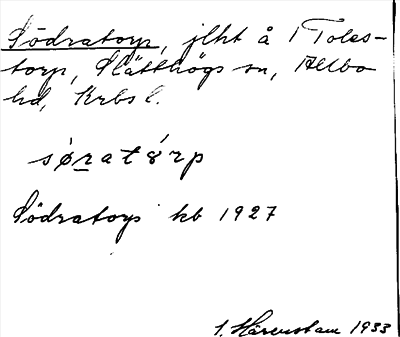 Södratorp, jlht å 1 Toles-
torp, Slätthögs sn, Allbo
hd, Krbs l.
sǿratǿrp
Södratorp kb 1927
I. Härenstam 1933